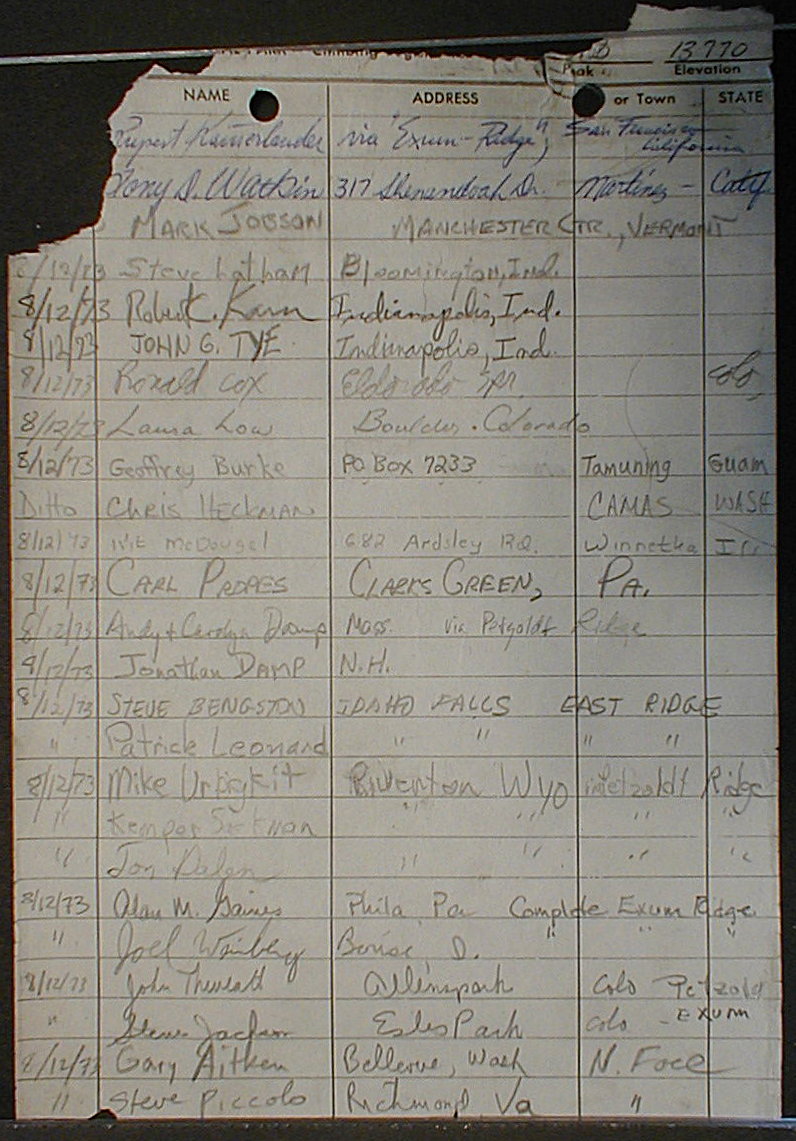 Climbing 13770
Peak Elevation
NAME ADDRESS or Town STATE
Rupert Kammerlander via "Exum-Ridge", San Francisco California
Tony D. Watkin 317 Shenendoah Dr. Martinez - Calif
MARK JOBSON MANCHESTER CTR., VERMONT
/12/73 Steve Latham Bloomington, Ind.
8/12/73 Robert C. Karn Indianapolis, Ind.
8/12/73 JOHN G. TYE Indianapolis, Ind.
8/12/73 Ronald Cox Eldorado Spr. Colo,
8/12/73 Laura Low Boulder. Colorado
8/12/73 Geoffrey Burke PO BOX 7233 Tamuning Guam
Ditto CHRIS HECKMAN CAMAS WASH
8/12/73 McDougel 682 Ardsley RD. Winnetka Ill.
8/12/73 CARL PROPES CLARKS GREEN, PA.
8/12/73 Andy + Carolyn Damp Mass. via Petzoldt Ridge
8/12/73 Jonathan DAMP N.H.
8/12/73 STEVE BENGSTON IDAHO FALLS EAST RIDGE
" Patrick Leonard " " " "
8/12/73 Mike Urbigkit Riverton Wyo Petzoldt Ridge
" Kemper " " " "
" Jon " " " "
8/12/73 Alan M. Gaines Phila, Pa Complete Exum Ridge
" Joel Weinberg Boise, D. " " "
8/12/73 John Allenspark Colo Petzold
" Steve Jackson Estes Park Colo - EXUM
8/12/73 Gary Aitken Bellevue, Wash N. Face
" Steve Piccolo Richmond Va "